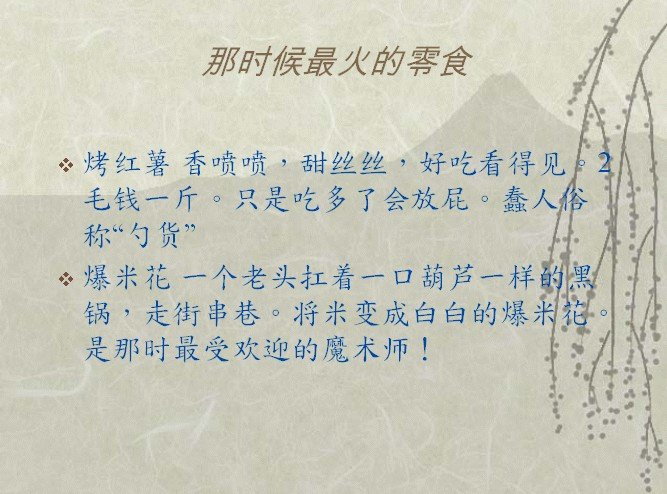 那时候最火的零食
烤红薯 香喷喷，甜丝丝，好吃看得见。2
毛钱一斤。只是吃多了会放屁。蠢人俗
称“勺货”
爆米花 一个老头扛着一口葫芦一样的黑
锅，走街串巷。将米变成白白的爆米花。
是那时最受欢迎的魔术师！